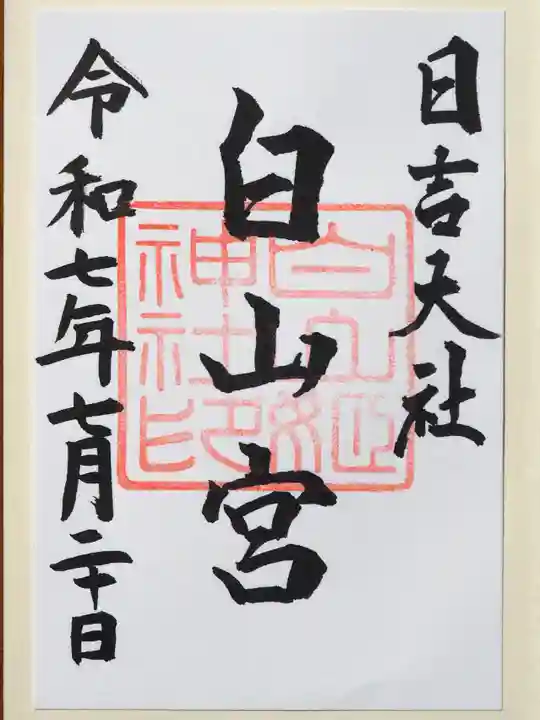 日吉大社
白山宮
令和七年七月二十日
白山姫
神社印